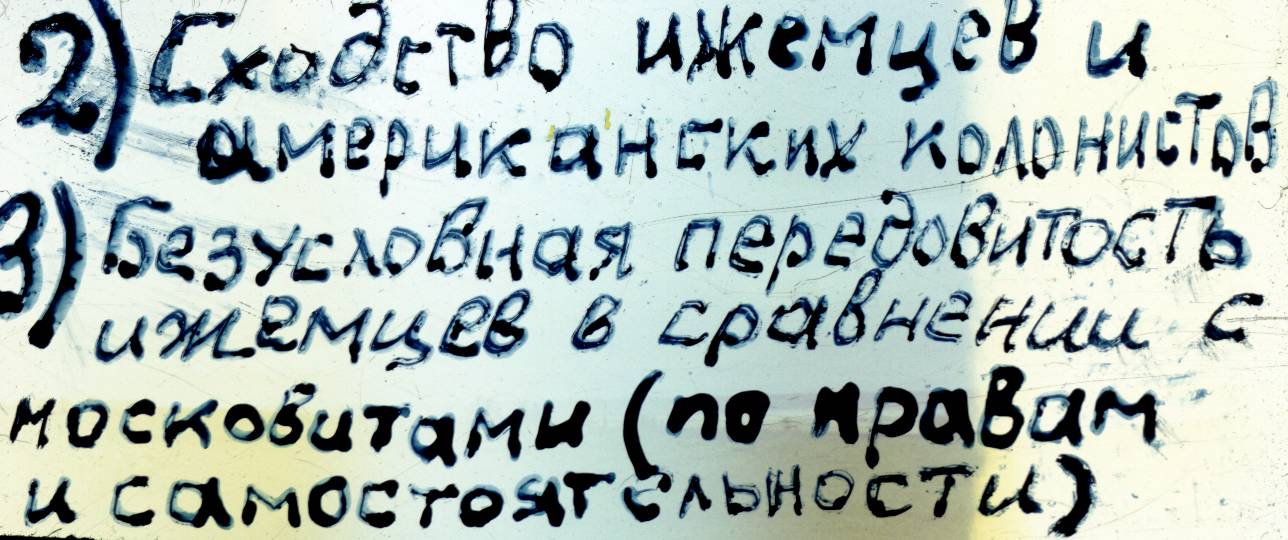 2) Сходство ижемцев и
американских колонистов
3) Безусловная передовитость
ижемцев в сравнении с
московитами (по нравам
и самостоятельности)